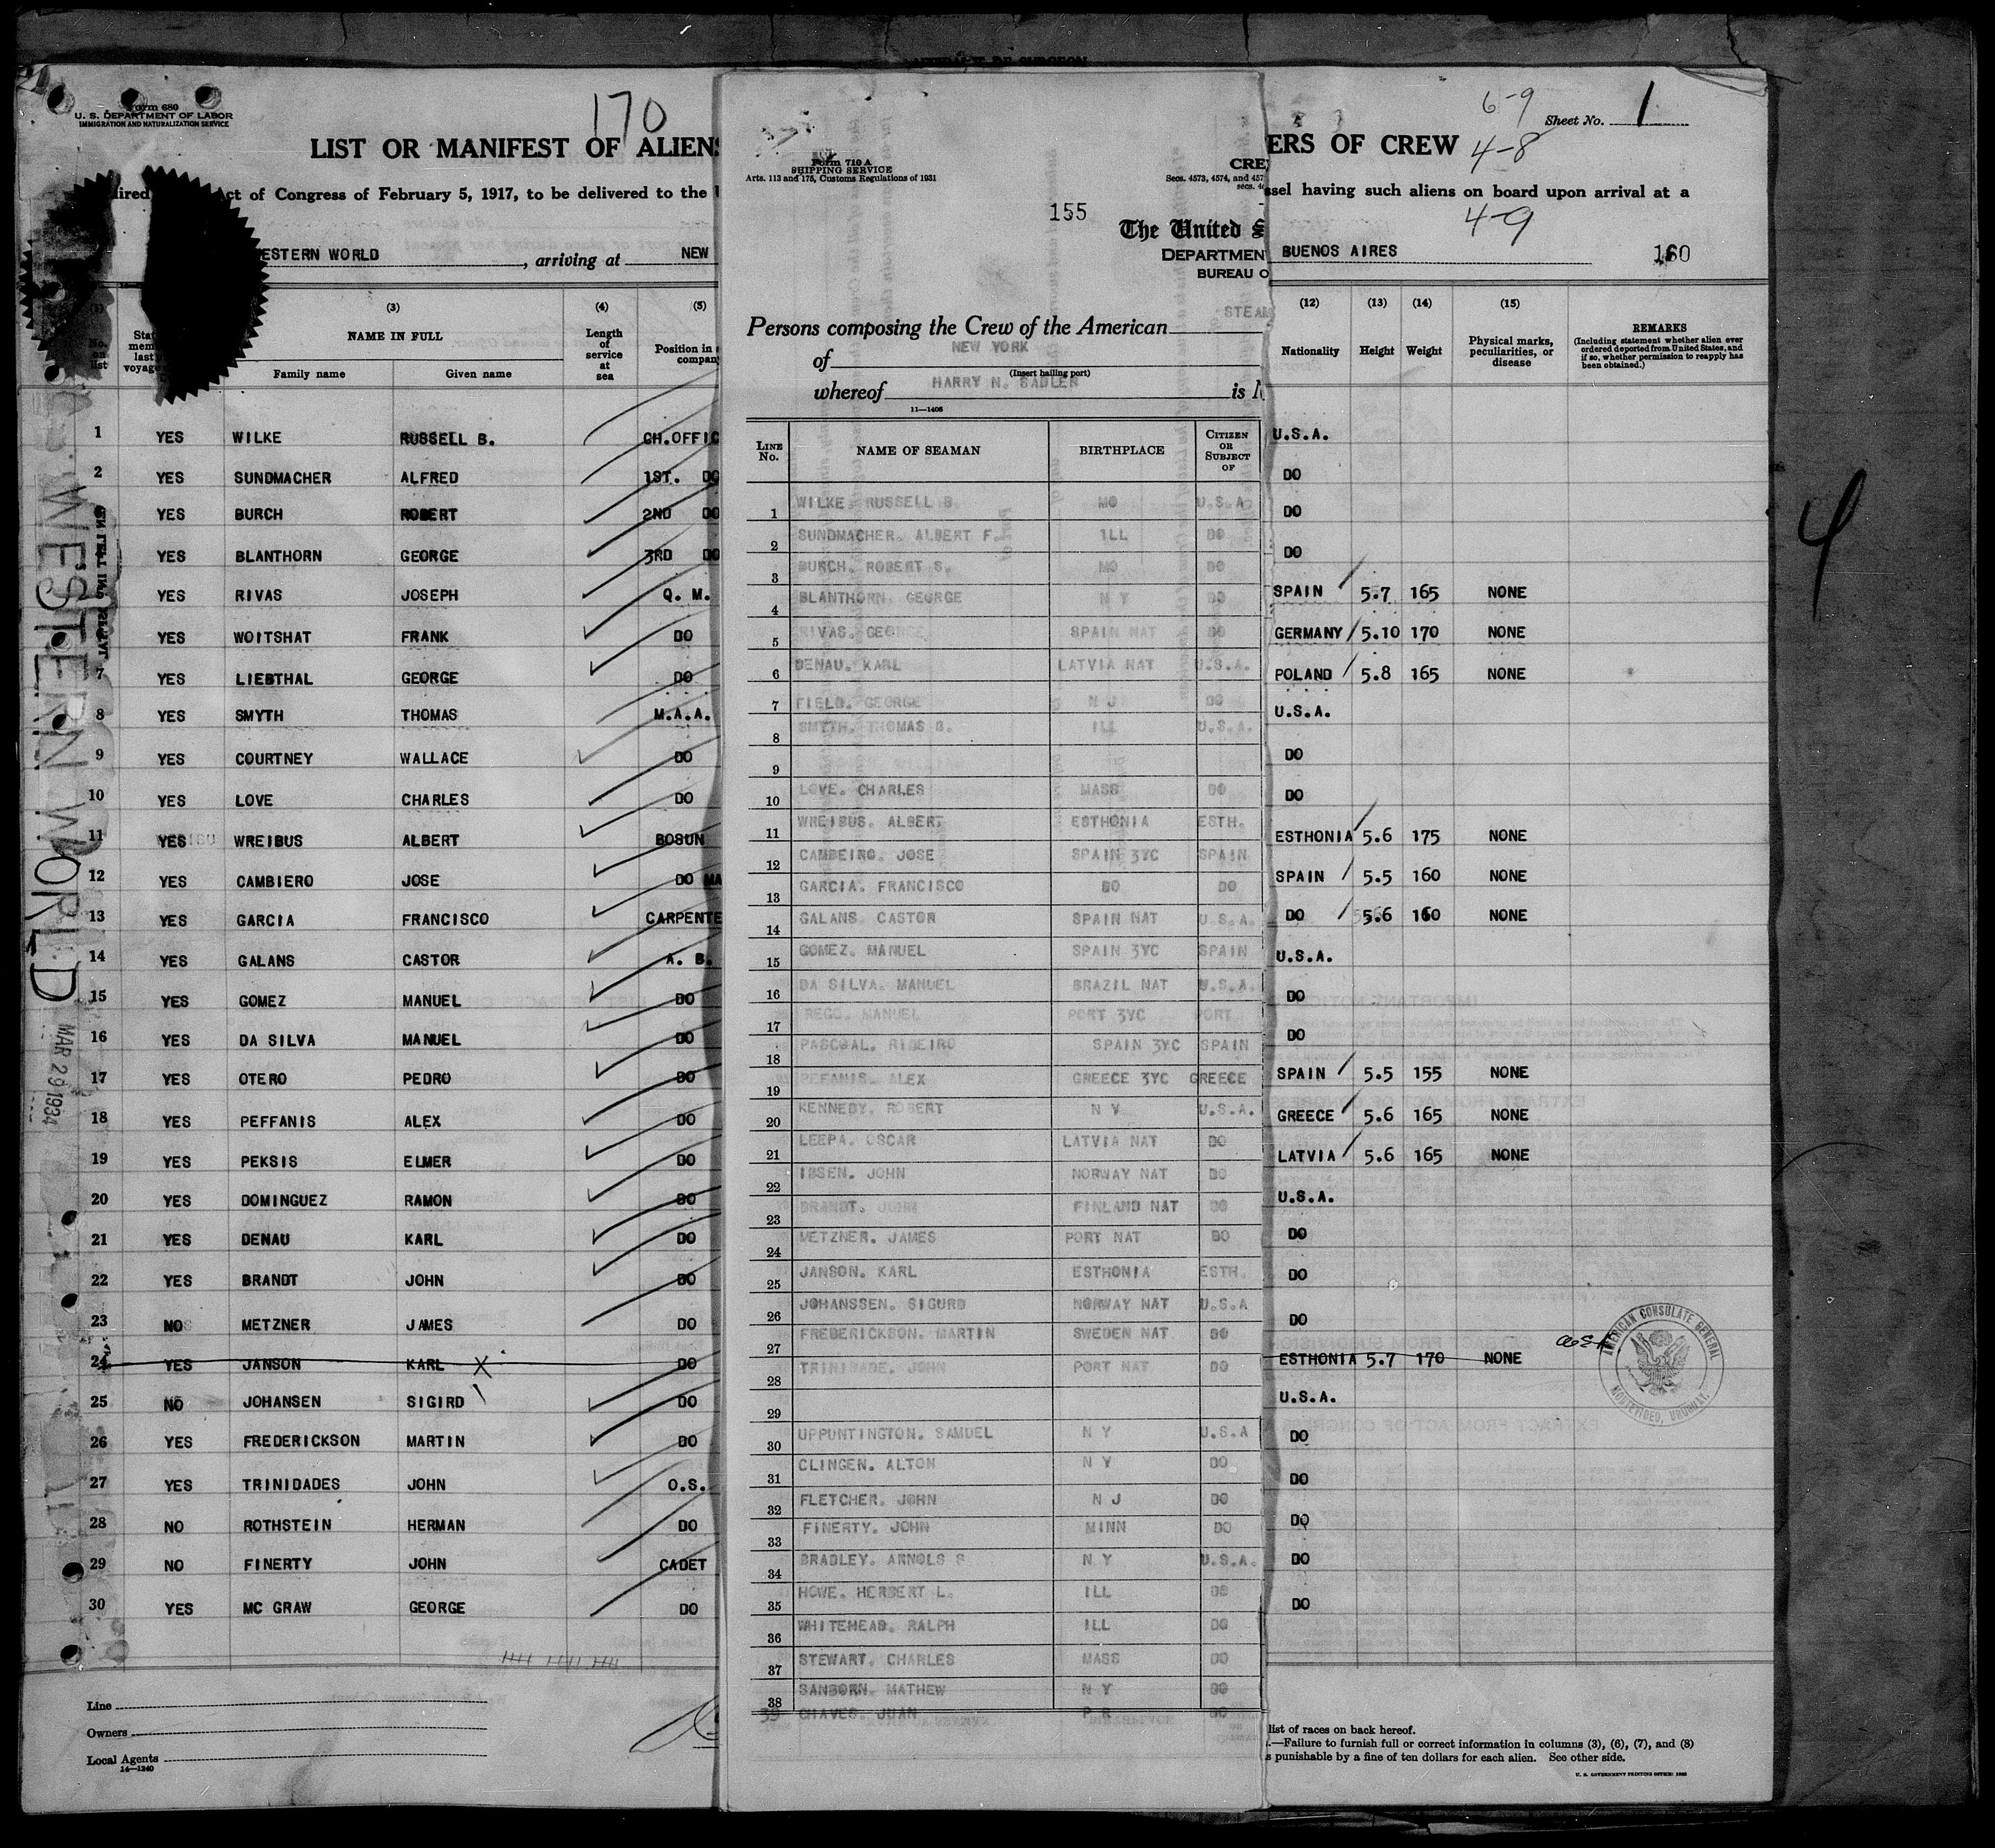 Form 680
U. S. DEPARTMENT OF LABOR
IMMIGRATION AND NATURALIZATION SERVICE
170
LIST OR MANIFEST OF ALIENS
ct of Congress of February 5, 1917, to be delivered to the
ESTERN WORLD, arriving at NEW
(3) (4) (5)
No. on list
NAME IN FULL
Family name Given name
Length of service at sea
Position in
1 YES WILKE RUSSELL B. CH.OFFIC
2 YES SUNDMACHER ALFRED 1ST. DO
YES BURCH ROBERT 2ND DO
YES BLANTHORN GEORGE 3RD DO
YES RIVAS JOSEPH Q. M.
YES WOITSHAT FRANK DO
7 YES LIEBTHAL GEORGE DO
8 YES SMYTH THOMAS M.A.A.
9 YES COURTNEY WALLACE DO
10 YES LOVE CHARLES DO
11 YES WREIBUS ALBERT BOSUN
12 YES CAMBIERO JOSE DO MA
13 YES GARCIA FRANCISCO CARPENTE
14 YES GALANS CASTOR A. B.
15 YES GOMEZ MANUEL DO
16 YES DA SILVA MANUEL DO
17 YES OTERO PEDRO DO
18 YES PEFFANIS ALEX DO
19 YES PEKSIS ELMER DO
20 YES DOMINGUEZ RAMON DO
21 YES DENAU KARL DO
22 YES BRANDT JOHN DO
23 NO METZNER JAMES DO
24 YES JANSON KARL X DO
25 NO JOHANSEN SIGIRD DO
26 YES FREDERICKSON MARTIN DO
27 YES TRINIDADES JOHN O.S.
28 NO ROTHSTEIN HERMAN DO
29 NO FINERTY JOHN CADET
30 YES MC GRAW GEORGE DO
Line
Owners
Local Agents
14—1240
WESTERN WORLD
MAR 29 1934
Form 710 A
SHIPPING SERVICE
Arts. 113 and 175, Customs Regulations of 1931
CRE
Secs. 4573, 4574, and 457
155
The United S
DEPARTMEN
BUREAU O
STEAM
Persons composing the Crew of the American
of NEW YORK
(Insert hailing port)
whereof HARRY N. SADLER is M
11—1408
LINE No. NAME OF SEAMAN BIRTHPLACE CITIZEN OR SUBJECT OF
1 WILKE. RUSSELL B. MO U.S.A
2 SUNDMACHER. ALBERT F. ILL DO
3 BURCH. ROBERT S. MO DO
4 BLANTHORN. GEORGE N Y DO
5 RIVAS. GEORGE SPAIN NAT DO
6 DENAU. KARL LATVIA NAT U.S.A.
7 FIELD. GEORGE N J DO
8 SMYTH. THOMAS B. ILL U.S.A.
9
10 LOVE. CHARLES MASS DO
11 WREIBUS. ALBERT ESTHONIA ESTH.
12 CAMBEIRO. JOSE SPAIN 3YC SPAIN
13 GARCIA. FRANCISCO DO DO
14 GALANS. CASTOR SPAIN NAT U.S.A.
15 GOMEZ. MANUEL SPAIN 3YC SPAIN
16 DA SILVA. MANUEL BRAZIL NAT U.S.A.
17 REGO. MANUEL PORT 3YC PORT
18 PASCOAL. RIBEIRO SPAIN 3YC SPAIN
19 PEFANIS. ALEX GREECE 3YC GREECE
20 KENNEDY. ROBERT N Y U.S.A.
21 LEEPA. OSCAR LATVIA NAT DO
22 IBSEN. JOHN NORWAY NAT DO
23 BRANDT. JOHN FINLAND NAT DO
24 METZNER. JAMES PORT NAT DO
25 JANSON. KARL ESTHONIA ESTH.
26 JOHANSSEN. SIGURD NORWAY NAT U.S.A
27 FREDERICKSON. MARTIN SWEDEN NAT DO
28 TRINIDADE. JOHN PORT NAT DO
29
30 UPPUNTINGTON. SAMUEL N Y U.S.A
31 CLINGEN. ALTON N Y DO
32 FLETCHER. JOHN N J DO
33 FINERTY. JOHN MINN DO
34 BRADLEY. ARNOLS S N Y U.S.A.
35 HOWE. HERBERT L. ILL DO
36 WHITEHEAD. RALPH ILL DO
37 STEWART. CHARLES MASS DO
38 SANBORN. MATHEW N Y DO
39 CHAVES. JUAN P R DO
6-9
Sheet No. 1
ERS OF CREW 4-8
ssel having such aliens on board upon arrival at a
4-9
BUENOS AIRES 160
(12) (13) (14) (15)
Nationality Height Weight Physical marks, peculiarities, or disease
REMARKS
(Including statement whether alien ever ordered deported from United States, and if so, whether permission to reapply has been obtained.)
U.S.A.
DO
DO
DO
SPAIN 5.7 165 NONE
GERMANY 5.10 170 NONE
POLAND 5.8 165 NONE
U.S.A.
DO
DO
ESTHONIA 5.6 175 NONE
SPAIN 5.5 160 NONE
DO 5.6 160 NONE
U.S.A.
DO
DO
SPAIN 5.5 155 NONE
GREECE 5.6 165 NONE
LATVIA 5.6 165 NONE
U.S.A.
DO
DO
DO
ESTHONIA 5.7 170 NONE
U.S.A.
DO
DO
DO
DO
DO
AMERICAN CONSULATE GENERAL
MONTEVIDEO, URUGUAY.
list of races on back hereof.
.—Failure to furnish full or correct information in columns (3), (6), (7), and (8)
s punishable by a fine of ten dollars for each alien. See other side.
4